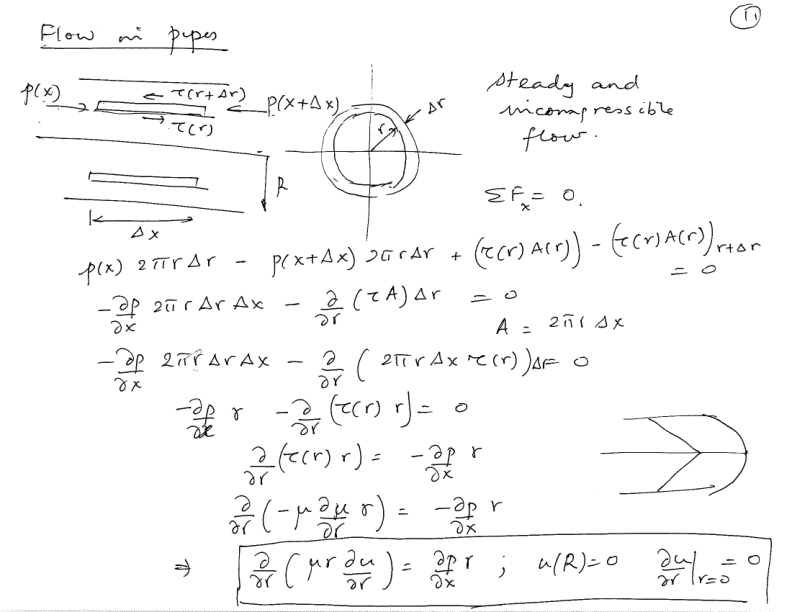 11
Flow in pipes
p(x) ← τ(r+Δr) p(x+Δx) Δr
→ τ(r) r
Steady and
incompressible
flow.
R
Δx
ΣF_x = 0.
p(x) 2πrΔr - p(x+Δx) 2πrΔr + (τ(r) A(r)) - (τ(r) A(r))_{r+Δr}
= 0
-∂p/∂x 2πrΔrΔx - ∂/∂r (τA)Δr = 0
A = 2πrΔx
-∂p/∂x 2πrΔrΔx - ∂/∂r (2πrΔx τ(r))Δr = 0
-∂p/∂x r - ∂/∂r (τ(r) r) = 0
∂/∂r (τ(r) r) = -∂p/∂x r
∂/∂r (-μ ∂u/∂r r) = -∂p/∂x r
⇒ ∂/∂r (μr ∂u/∂r) = ∂p/∂x r ; u(R)=0 ∂u/∂r|_{r=0} = 0